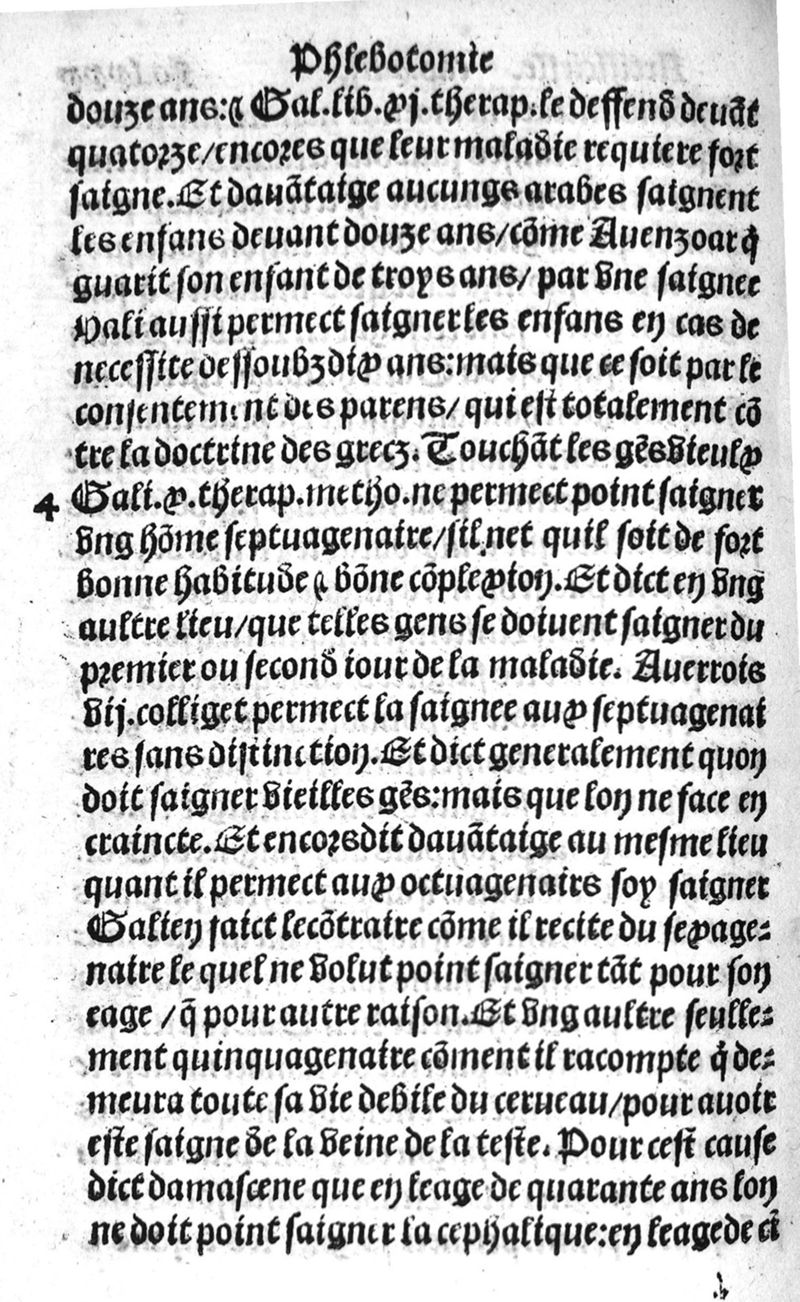 Phlebotomie
douze ans:⁊ Gal.lib.xj.therap.le deffend deuãt
quatorze/encores que leur maladie requiere fort
saigne.Et dauãtaige aucungs arabes saignent
les enfans deuant douze ans/cõme Auenzoar q̃
guarit son enfant de troys ans/ par vne saignee
Hali aussi permect saigner les enfans en cas de
necessite dessoubz dix ans:mais que ce soit par le
consentement des parens/ qui est totalement cõ
tre la doctrine des grecz.Touchãt les gẽs vieulx
4 Gali.x.therap.metho.ne permect point saigner
vng hõme septuagenaire/sil net quil soit de fort
bonne habitude ⁊ bõne cõplexion.Et dict en vng
aultre lieu/que telles gens se doiuent saigner du
premier ou second iour de la maladie. Auerrois
vij.colliget permect la saignee aux septuagenai
res sans distinction.Et dict generalement quon
doit saigner vieilles gẽs:mais que lon ne face en
craincte.Et encors dit dauãtaige au mesme lieu
quant il permect aux octuagenairs soy saigner
Galien faict le cõtraire cõme il recite du sexage⸗
naire le quel ne volut point saigner tãt pour son
eage /q̃ pour autre raison.Et vng aultre seulle⸗
ment quinquagenaire cõment il racompte q̃ de⸗
meura toute sa vie debile du cerueau/pour auoir
este saigne de la veine de la teste. Pour cest cause
dict damascene que en leage de quarante ans lon
ne doit point saigner la cephalique:en leage de cĩ
b